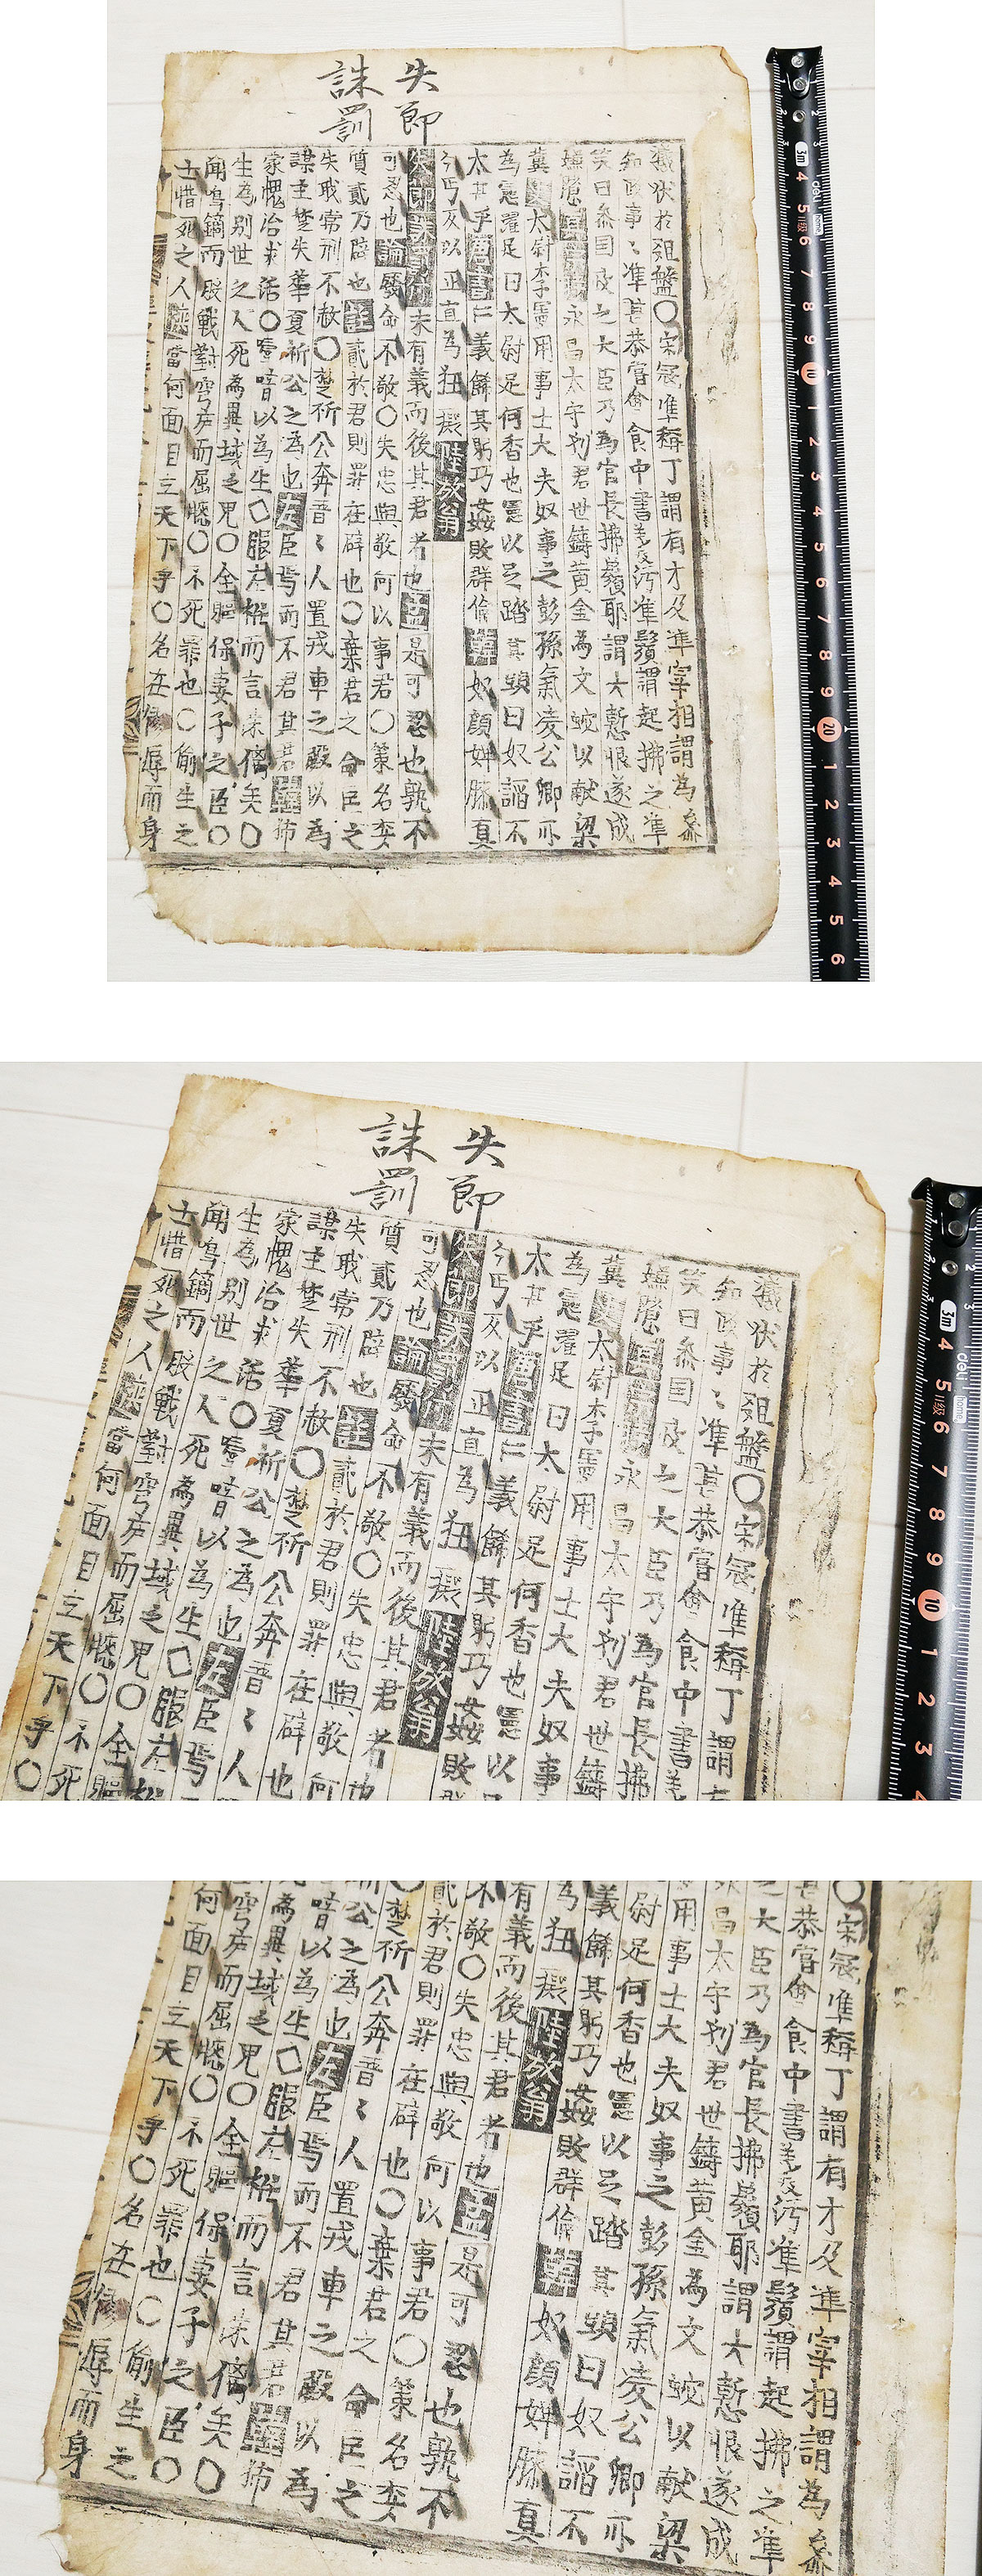 失節
誅罰
犧伏於俎盤〇宋寇準稱丁謂有才及準宰相謂為叅
知政事〻準甚恭嘗會食中書羹汚準鬚謂起拂之準
笑曰叅国政之大臣乃為官長拂鬚耶謂大慙恨遂成
嫌隙永昌太守刋君世鑄黃金為文蛇以献梁
冀太尉李憲用事士大夫奴事之彭孫氣凌公卿亦
為憲濯足曰太尉足何香也憲以足踏其頭曰奴謟不
太甚乎唐書仁義餙其躬巧姦敗群倫奴顔婢膝真
乞丐反以正直為狂陸放翁
失節誅罰未有義而後其君者也孟是可忍也孰不
可忍也論發命不敬〇失忠與敬何以事君〇策名委
質貳乃辟也左貳於君則罪在辟也〇棄君之命臣之
失戢常刑不赦〇楚析公奔晋〻人置戎車之殿以為
謀主楚失華夏析公之為也左臣焉而不君其君
家愧治求活〇喑以為生〇服左袵而言侏矣〇
生為别世之人死為異域之鬼〇全軀保妻子之臣〇
聞鳴鏑而股戰對穹廬而屈膝〇不死罪也〇偷生之
士惜死之人當何面目立天下乎〇名在辱而身
3m
deli
home